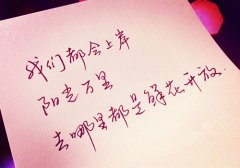 我们都会上岸
阳光万里
去哪里都是鲜花开放